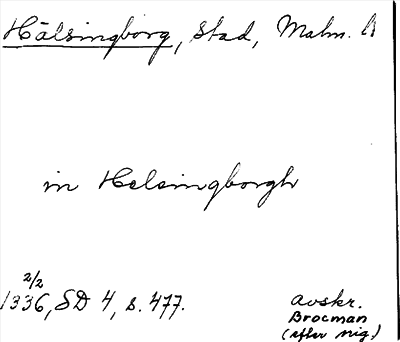 Hälsingborg, Stad, Malm.
in Helsingborgh
2/2
1336, SD 4, s. 477.
avskr.
Brocman
(efter orig.)